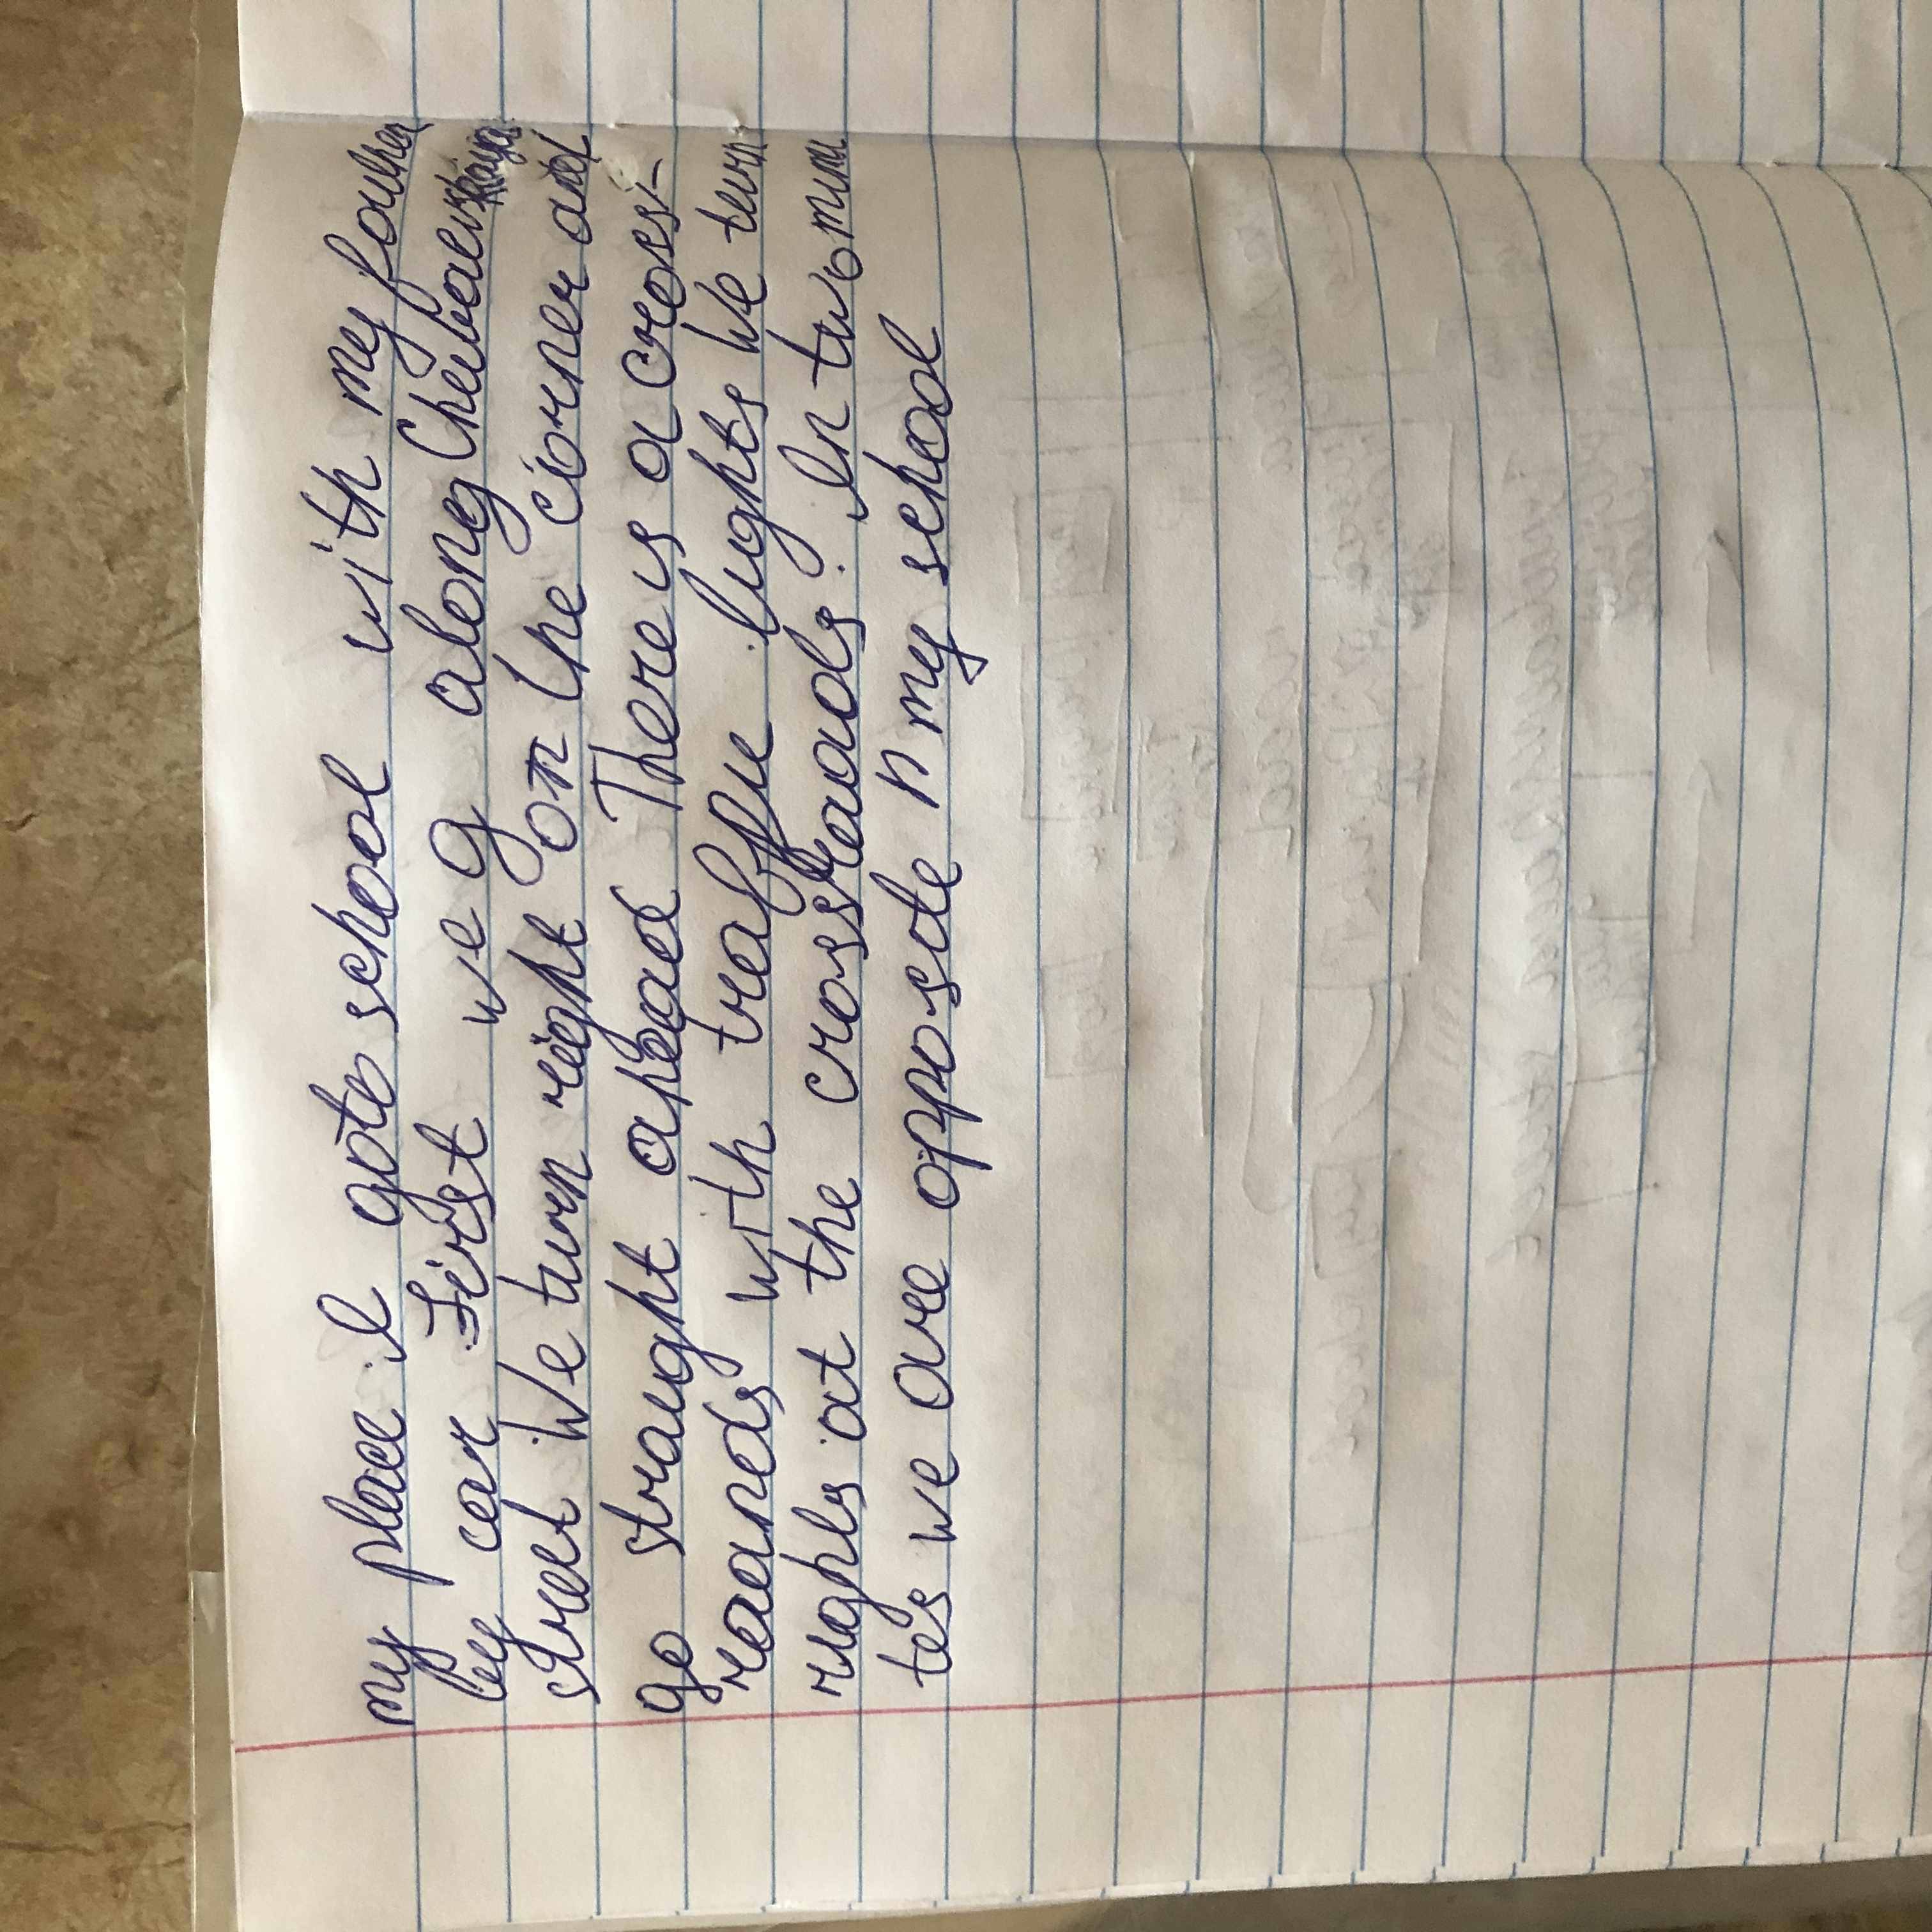 my place I goto school with my father
by car First we g along Cheboerskaya
street We turn reight on the corner and
go straught aphead There is a cross-
reands with traffic lights We turn
righls at the crossreads. In two minu
tes we are opposite n my school